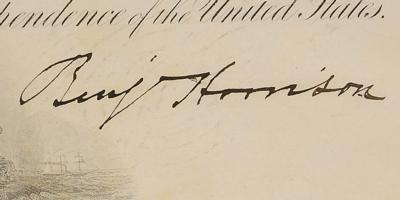 pendence of the United States.
Benj Harrison